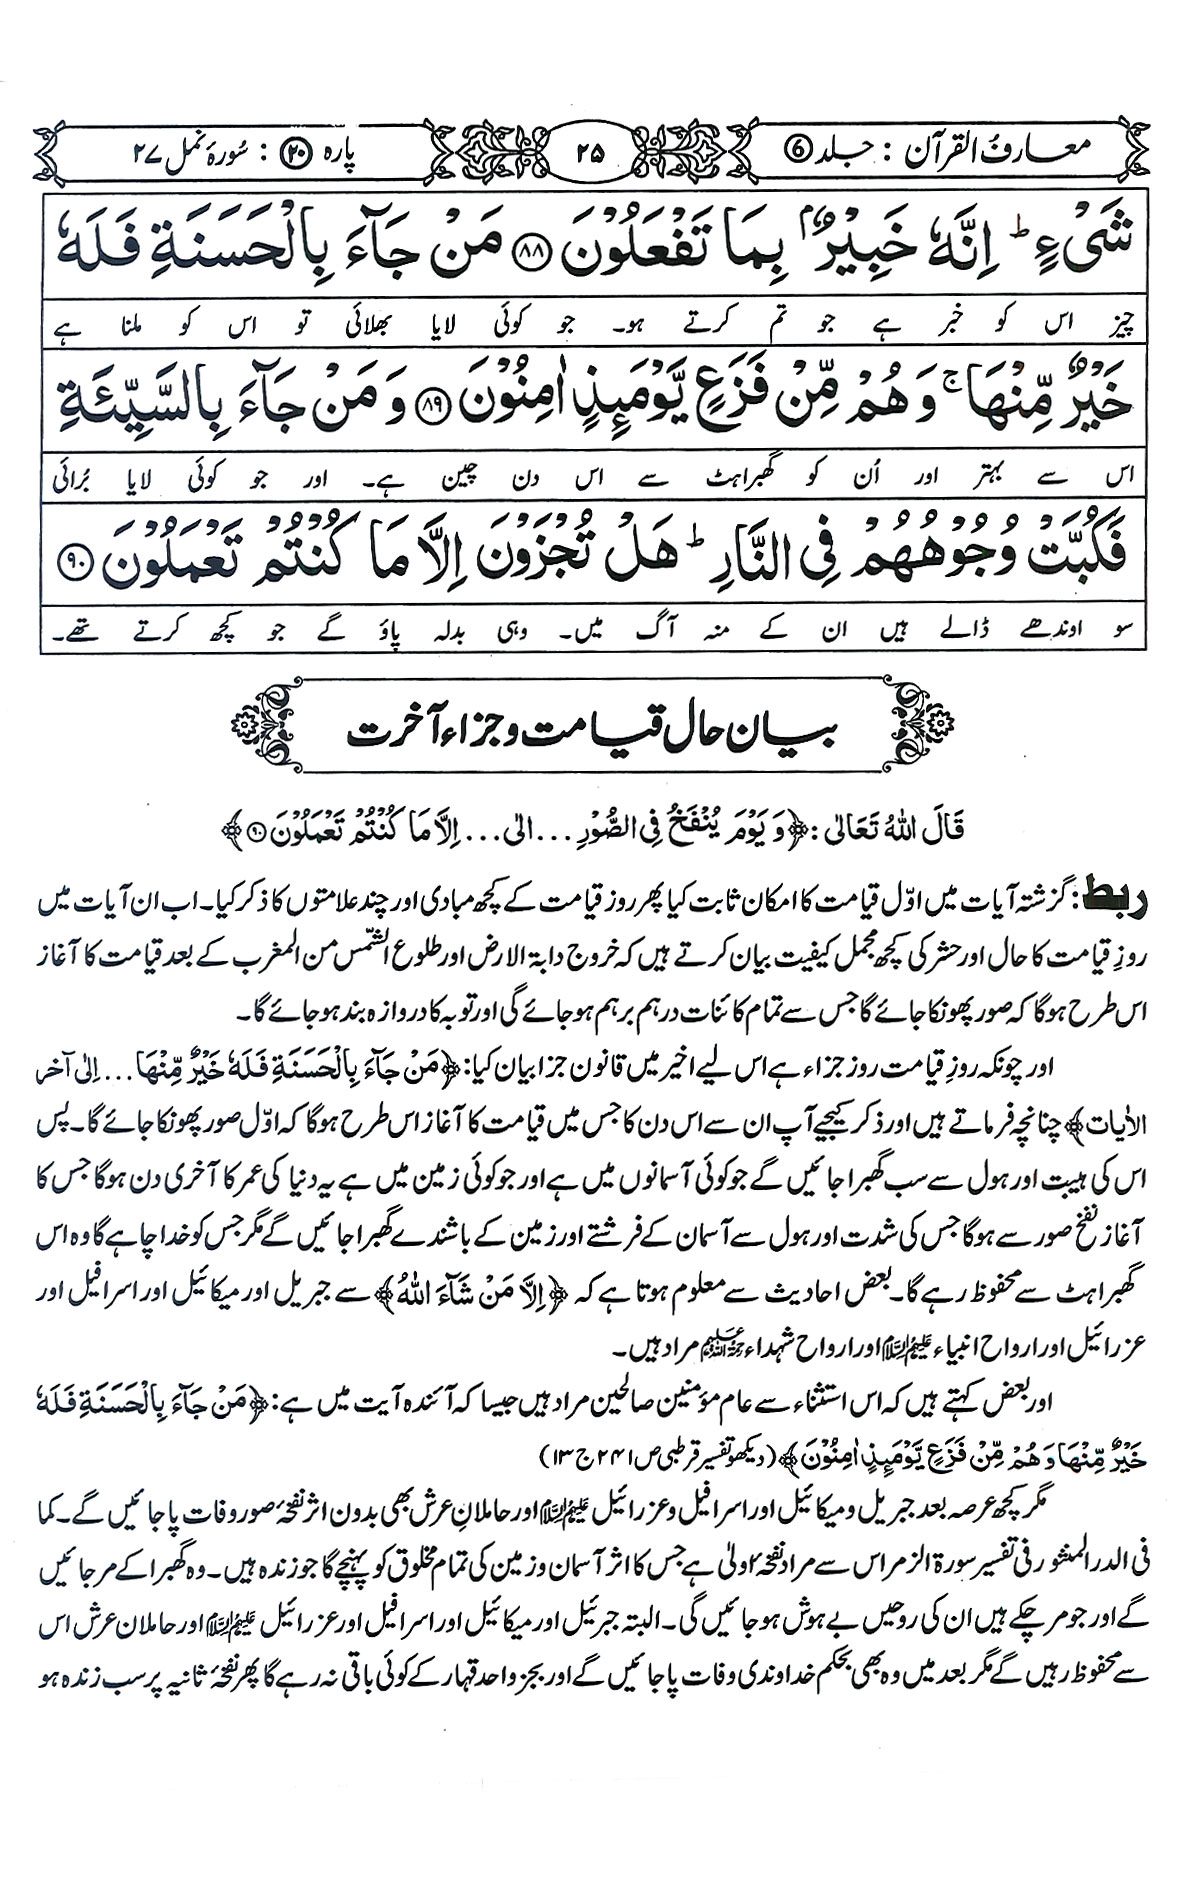 معارفُ القرآن : جلد ⑥
۲۵
پارہ ⑳ : سُورۂ نمل ۲۷
شَیْءٍ ؕ اِنَّهٗ خَبِیْرٌۢ بِمَا تَفْعَلُوْنَ ﴿۸۸﴾ مَنْ جَآءَ بِالْحَسَنَةِ فَلَهٗ
چیز اس کو خبر ہے جو تم کرتے ہو۔ جو کوئی لایا بھلائی تو اس کو ملنا ہے
خَیْرٌ مِّنْهَا ۚ وَ هُمْ مِّنْ فَزَعٍ یَّوْمَىِٕذٍ اٰمِنُوْنَ ﴿۸۹﴾ وَ مَنْ جَآءَ بِالسَّیِّئَةِ
اس سے بہتر اور اُن کو گھبراہٹ سے اس دن چین ہے۔ اور جو کوئی لایا بُرائی
فَكُبَّتْ وُجُوْهُهُمْ فِی النَّارِ ؕ هَلْ تُجْزَوْنَ اِلَّا مَا كُنْتُمْ تَعْمَلُوْنَ ﴿۹۰﴾
سو اوندھے ڈالے ہیں ان کے منہ آگ میں۔ وہی بدلہ پاؤ گے جو کچھ کرتے تھے۔
بیان حال قیامت و جزاء آخرت
قَالَ اللّٰهُ تَعَالٰی : ﴿وَ یَوْمَ یُنْفَخُ فِی الصُّوْرِ ... الٰی ... اِلَّا مَا كُنْتُمْ تَعْمَلُوْنَ ۹۰﴾
ربط : گزشتہ آیات میں اوّل قیامت کا امکان ثابت کیا پھر روز قیامت کے کچھ مبادی اور چند علامتوں کا ذکر کیا۔ اب ان آیات میں
روزِ قیامت کا حال اور حشر کی کچھ مجمل کیفیت بیان کرتے ہیں کہ خروج دابۃ الارض اور طلوع الشمس من المغرب کے بعد قیامت کا آغاز
اس طرح ہوگا کہ صور پھونکا جائے گا جس سے تمام کائنات درہم برہم ہو جائے گی اور توبہ کا دروازہ بند ہو جائے گا۔
اور چونکہ روزِ قیامت روز جزاء ہے اس لیے اخیر میں قانون جزا بیان کیا: ﴿مَنْ جَآءَ بِالْحَسَنَةِ فَلَهٗ خَیْرٌ مِّنْهَا ... اِلٰی آخر
الاٰیات﴾ چنانچہ فرماتے ہیں اور ذکر کیجیے آپ ان سے اس دن کا جس میں قیامت کا آغاز اس طرح ہوگا کہ اوّل صور پھونکا جائے گا۔ پس
اس کی ہیبت اور ہول سے سب گھبرا جائیں گے جو کوئی آسمانوں میں ہے اور جو کوئی زمین میں ہے یہ دنیا کی عمر کا آخری دن ہوگا جس کا
آغاز نفخ صور سے ہوگا جس کی شدت اور ہول سے آسمان کے فرشتے اور زمین کے باشندے گھبرا جائیں گے مگر جس کو خدا چاہے گا وہ اس
گھبراہٹ سے محفوظ رہے گا۔ بعض احادیث سے معلوم ہوتا ہے کہ ﴿اِلَّا مَنْ شَآءَ اللّٰهُ﴾ سے جبریل اور میکائیل اور اسرافیل اور
عزرائیل اور ارواح انبیاء علیہم السلام اور ارواح شہداء رحمۃ اللہ علیہم مراد ہیں۔
اور بعض کہتے ہیں کہ اس استثناء سے عام مؤمنین صالحین مراد ہیں جیسا کہ آئندہ آیت میں ہے: ﴿مَنْ جَآءَ بِالْحَسَنَةِ فَلَهٗ
خَیْرٌ مِّنْهَا وَ هُمْ مِّنْ فَزَعٍ یَّوْمَىِٕذٍ اٰمِنُوْنَ﴾ (دیکھو تفسیر قرطبی ص ۲۴۱ ج ۱۳)
مگر کچھ عرصہ بعد جبریل و میکائیل اور اسرافیل و عزرائیل علیہم السلام اور حاملانِ عرش بھی بدون اثر نفخۂ صور وفات پا جائیں گے۔ کما
فی الدر المنثور فی تفسیر سورۃ الزمر اس سے مراد نفخۂ اولیٰ ہے جس کا اثر آسمان و زمین کی تمام مخلوق کو پہنچے گا جو زندہ ہیں۔ وہ گھبرا کے مر جائیں
گے اور جو مر چکے ہیں ان کی روحیں بے ہوش ہو جائیں گی۔ البتہ جبرئیل اور میکائیل اور اسرافیل اور عزرائیل علیہم السلام اور حاملان عرش اس
سے محفوظ رہیں گے مگر بعد میں وہ بھی بحکم خداوندی وفات پا جائیں گے اور بجز واحد قہار کے کوئی باقی نہ رہے گا پھر نفخۂ ثانیہ پر سب زندہ ہو